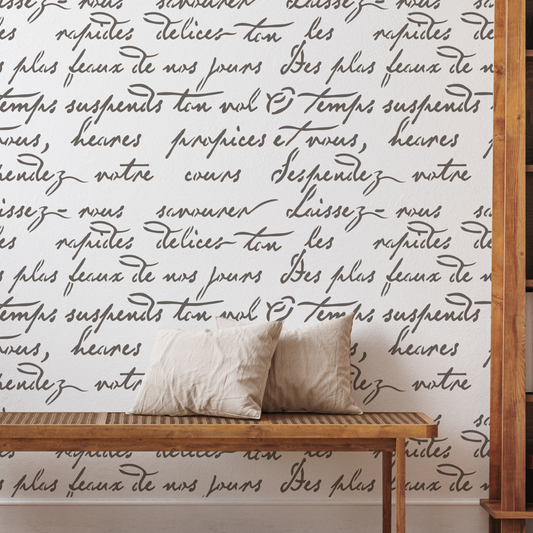 issez- nous savourer Laissez- nous sa
es rapides delices tan les rapides des
s plas beaux de nos jours Des plas beaux de nos
temps suspends tan vol O temps suspends tan
ous, heares propices et vous, heares p
pendez votre cours Suspendez votre
issez- nous savourer Laissez- nous sa
es rapides delices tan les rapides des
s plas beaux de nos jours Des plas beaux de nos
temps suspends tan vol O temps suspends tan
ous, heares heares
pendez votre votre
sa
rapides delices tan les rapides
s plas beaux de nos jours Des plas beaux de nos